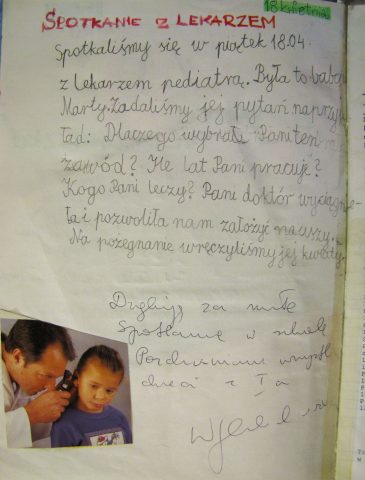 18 kwietnia
SPOTKANIE Z LEKARZEM
Spotkaliśmy się w piątek 18.04.
z lekarzem pediatrą. Była to babcia
Marty. Zadaliśmy jej pytań naprzyk
ład: Dlaczego wybrała Pani ten
zawód? Ile lat Pani pracuje?
Kogo Pani leczy? Pani doktór wyciągnę-
ła i pozwoliła nam założyć na uszy.
Na pożegnanie wręczyliśmy jej kwiaty.
Dziękuję za miłe
spotkanie w szkole
Pozdrawiam wszystkie
dzieci z I a